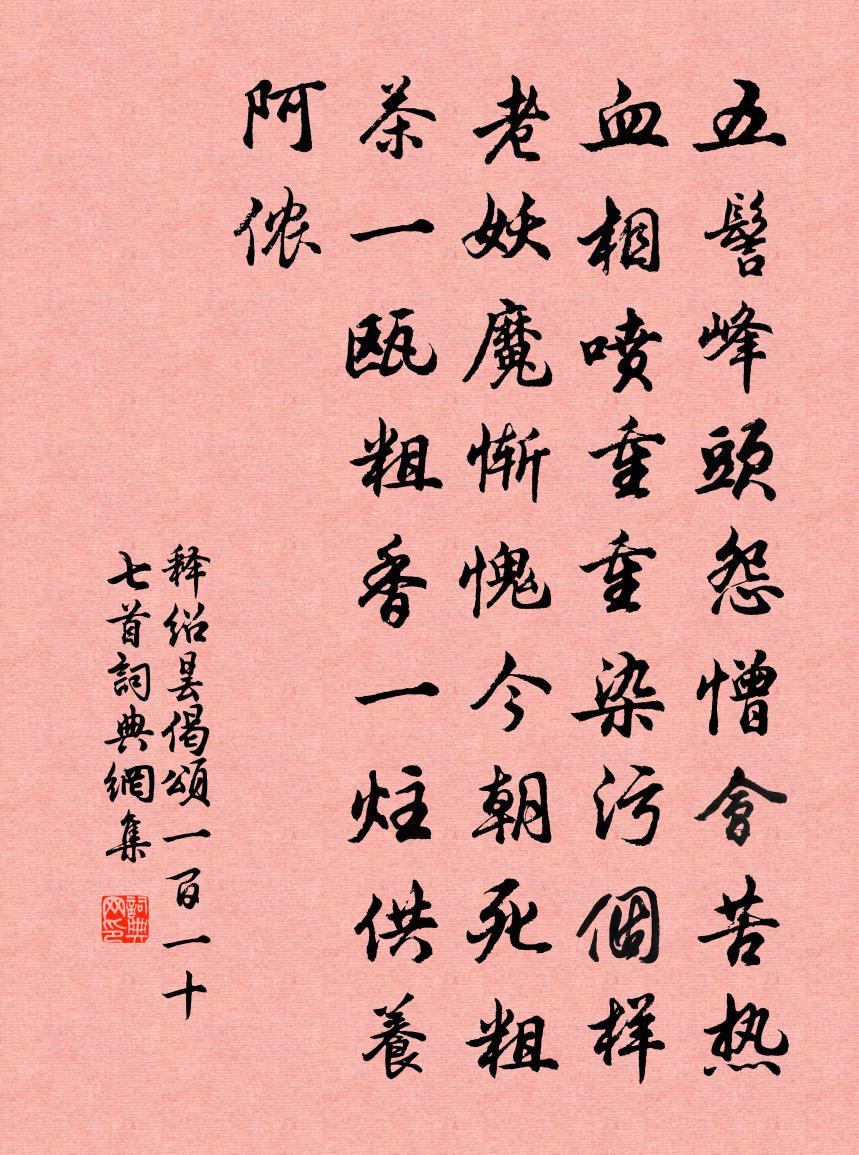 五髻峰頭怨憎會苦热
血相喷重重染污個样
老妖魔惭愧今朝死粗
茶一瓯粗香一炷供養
阿侬
释绍昙偈頌一百一十
七首詞典網集
詞典网印